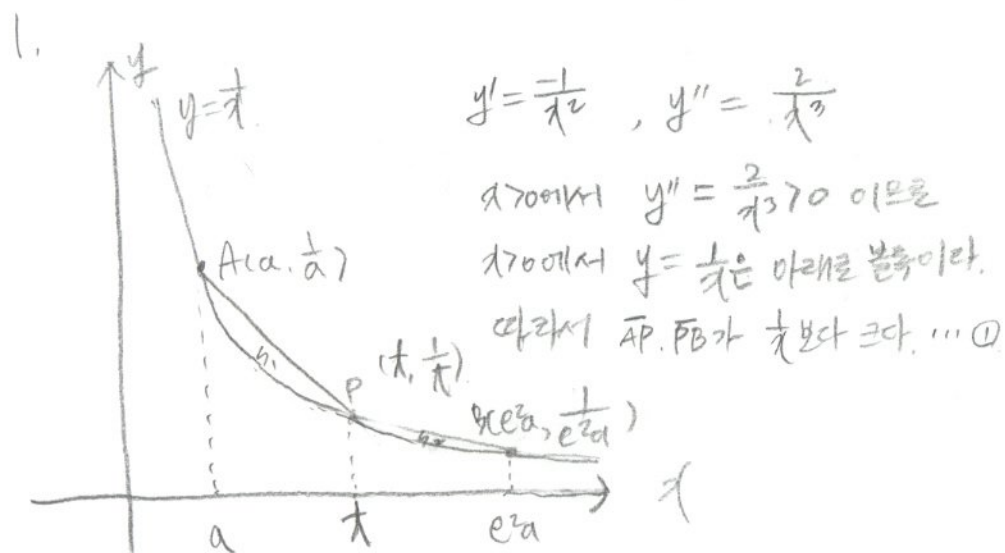 1.
y
y=1/x
y'=-1/x² , y''=2/x³
x>0에서 y''=2/x³>0 이므로
x>0에서 y=1/x은 아래로 볼록이라.
따라서 AP, PB가 1/x보다 크다. … ①
A(a, 1/a)
S₁
P (t, 1/t)
S₂
B(e²a, 1/e²a)
a t e²a x